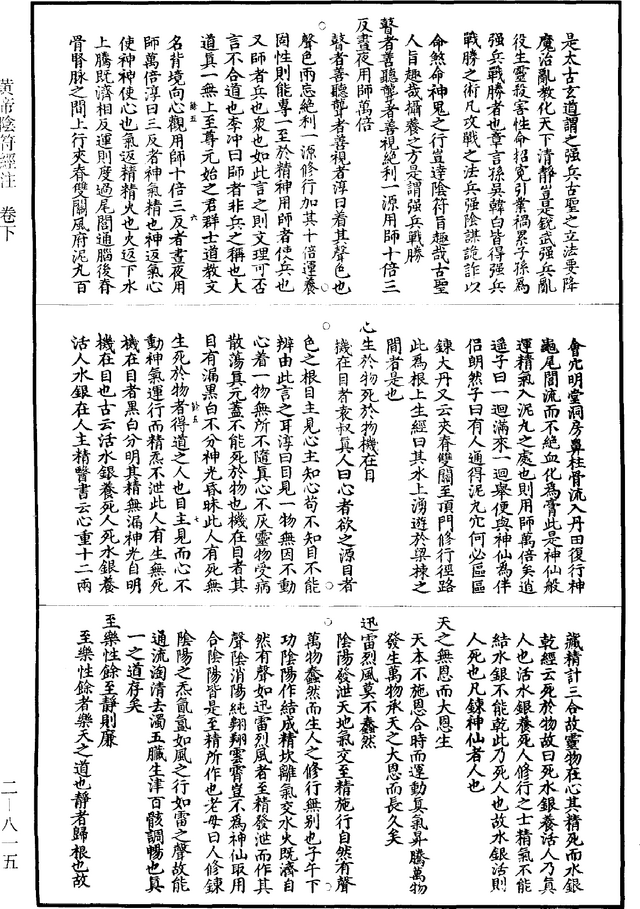 是太古玄道謂之強兵古聖之立法要降
魔治亂教化天下清靜豈是銳武強兵亂
役生靈殺害性命招寃引業禍累子孫為
強兵戰勝者也章言孫吳韓白皆得強兵
戰勝之術凡攻戰之法兵強陰謀詭詐以
命煞命神鬼之行豈達陰符旨趣哉古聖
人旨趣哉攝養之方是謂強兵戰勝
瞽者善聽聾者善視絕利一源用師十倍三
反晝夜用師萬倍
瞽者善聽聾者善視者淳曰着其聲色也
聲色兩忘絕利一源修行加其十倍運養
固性則能專一至於精神用師者使兵也
又師者兵也衆也如此言之則文理可否
言不合道也李沖曰師者非兵之稱也大
道真一無上至尊元始之君群士道教文
名背境向心觀用師十倍三反者晝夜用
師萬倍淳曰三反者神氣精也神返氣心
使神神使心也氣返精精火也火返下水
上騰既濟相反運則度過尾閭通腦後脊
骨腎脉之間上行夾脊雙關風府泥丸百
會穴明堂洞房鼻柱骨流入丹田復行神
龜尾閭流而不絕血化為膏此是神仙般
運精氣入泥丸之處也則用師萬倍矣逍
遥子曰一迴滿來一迴舉便與神仙為伴
侶朗然子曰有人通得泥丸穴何必區區
鍊大丹又云夾脊雙關至頂門修行徑路
此為根上生經曰其水上湧遊於梁棟之
間者是也
心生於物死於物機在目
機在目者袁叔真人曰心者欲之源目者
色之根目主見心主知心苟不知目不能
辨由此言之耳淳曰目見一物無因不動
心着一物無所不隨真心不灰靈物受病
散蕩真元蓋不能死於物也機在目者其
目有漏黑白不分神光昏昧此人有死無
生死於物者得道之人也目主見而心不
動神氣運行而精炁不泄此人有生無死
機在目者黑白分明其精無漏神光自明
機在目也古云活水銀養死人死水銀養
活人水銀在人主精醫書云心重十二兩
藏精計三合故靈物在心其精死而水銀
乾經云死於物故曰死水銀養活人乃真
人也活水銀養死人修行之士精氣不能
結水銀不能乾此乃死人也故水銀活則
人死也凡鍊神仙者人也
天之無恩而大恩生
天本不施恩合時而運動真氣昇騰萬物
發生萬物承天之大恩而長久矣
迅雷烈風莫不蠢然
陰陽發泄天地氣交至精施行自然有聲
萬物蠢然而生人之修行無别也子午下
功陰陽作結成精坎離氣交水火既濟自
然有聲如迅雷烈風者至精發泄而作其
聲陰消陽純翱翔雲霄豈不為神仙取用
合陰陽皆是至精所作也老母曰人修鍊
陰陽之炁氤氳如風之行如雷之聲故能
通流淘清去濁五臟生津百骸調暢也真
一之道存矣
至樂性餘至靜則廉
至樂性餘者樂天之道也靜者歸根也故
黄帝陰符經注　卷下
二—八一五